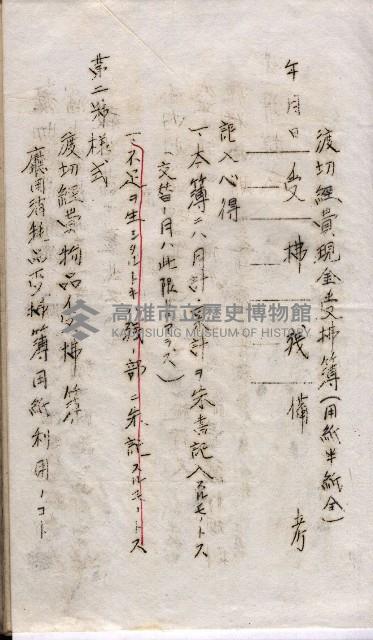 渡切經費現金受拂簿（用紙半紙全）
年月日 受 拂 殘 備考
記入心得
一、本簿ニハ月計、累計ヲ朱書記入スルモノトス
（交替ノ月ハ此限ニアラス）
一、不足ヲ生シタルトキ殘ノ部ニ朱記スルモノトス
第二号樣式
渡切經費物品受拂簿
廳用消耗品受拂簿用紙利用ノコト
高雄市立歷史博物館
KAOHSIUNG MUSEUM OF HISTORY